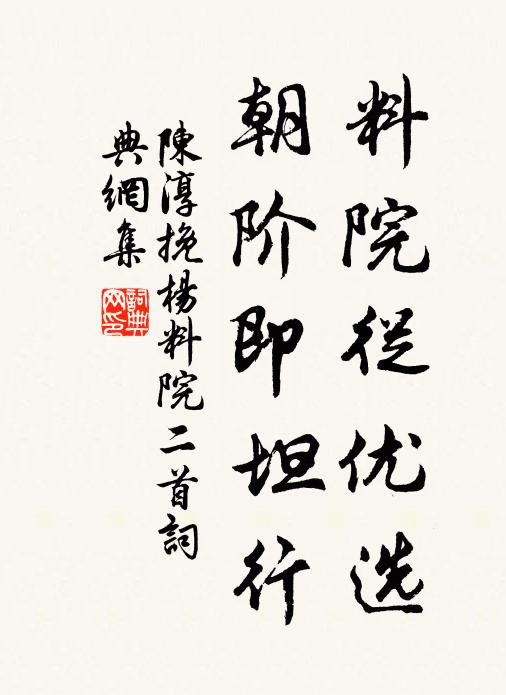 料院從优选
朝阶即坦行
陳淳挽楊料院二首詞
典網集
詞典网印